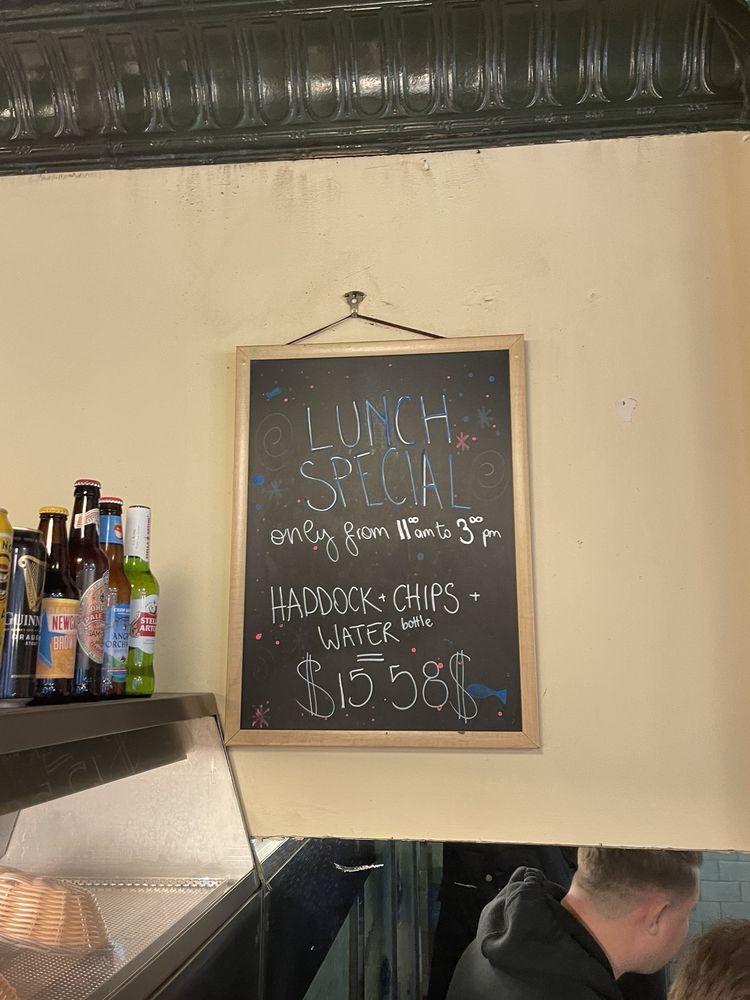 LUNCH
SPECIAL
only from 11⁰⁰am to 3⁰⁰pm
HADDOCK + CHIPS +
WATER bottle
=
$15.58$
GUINN
DRAUG
NEWC
BROWN
PALE
SAM
ANG
ORCH
STEL
ARTO